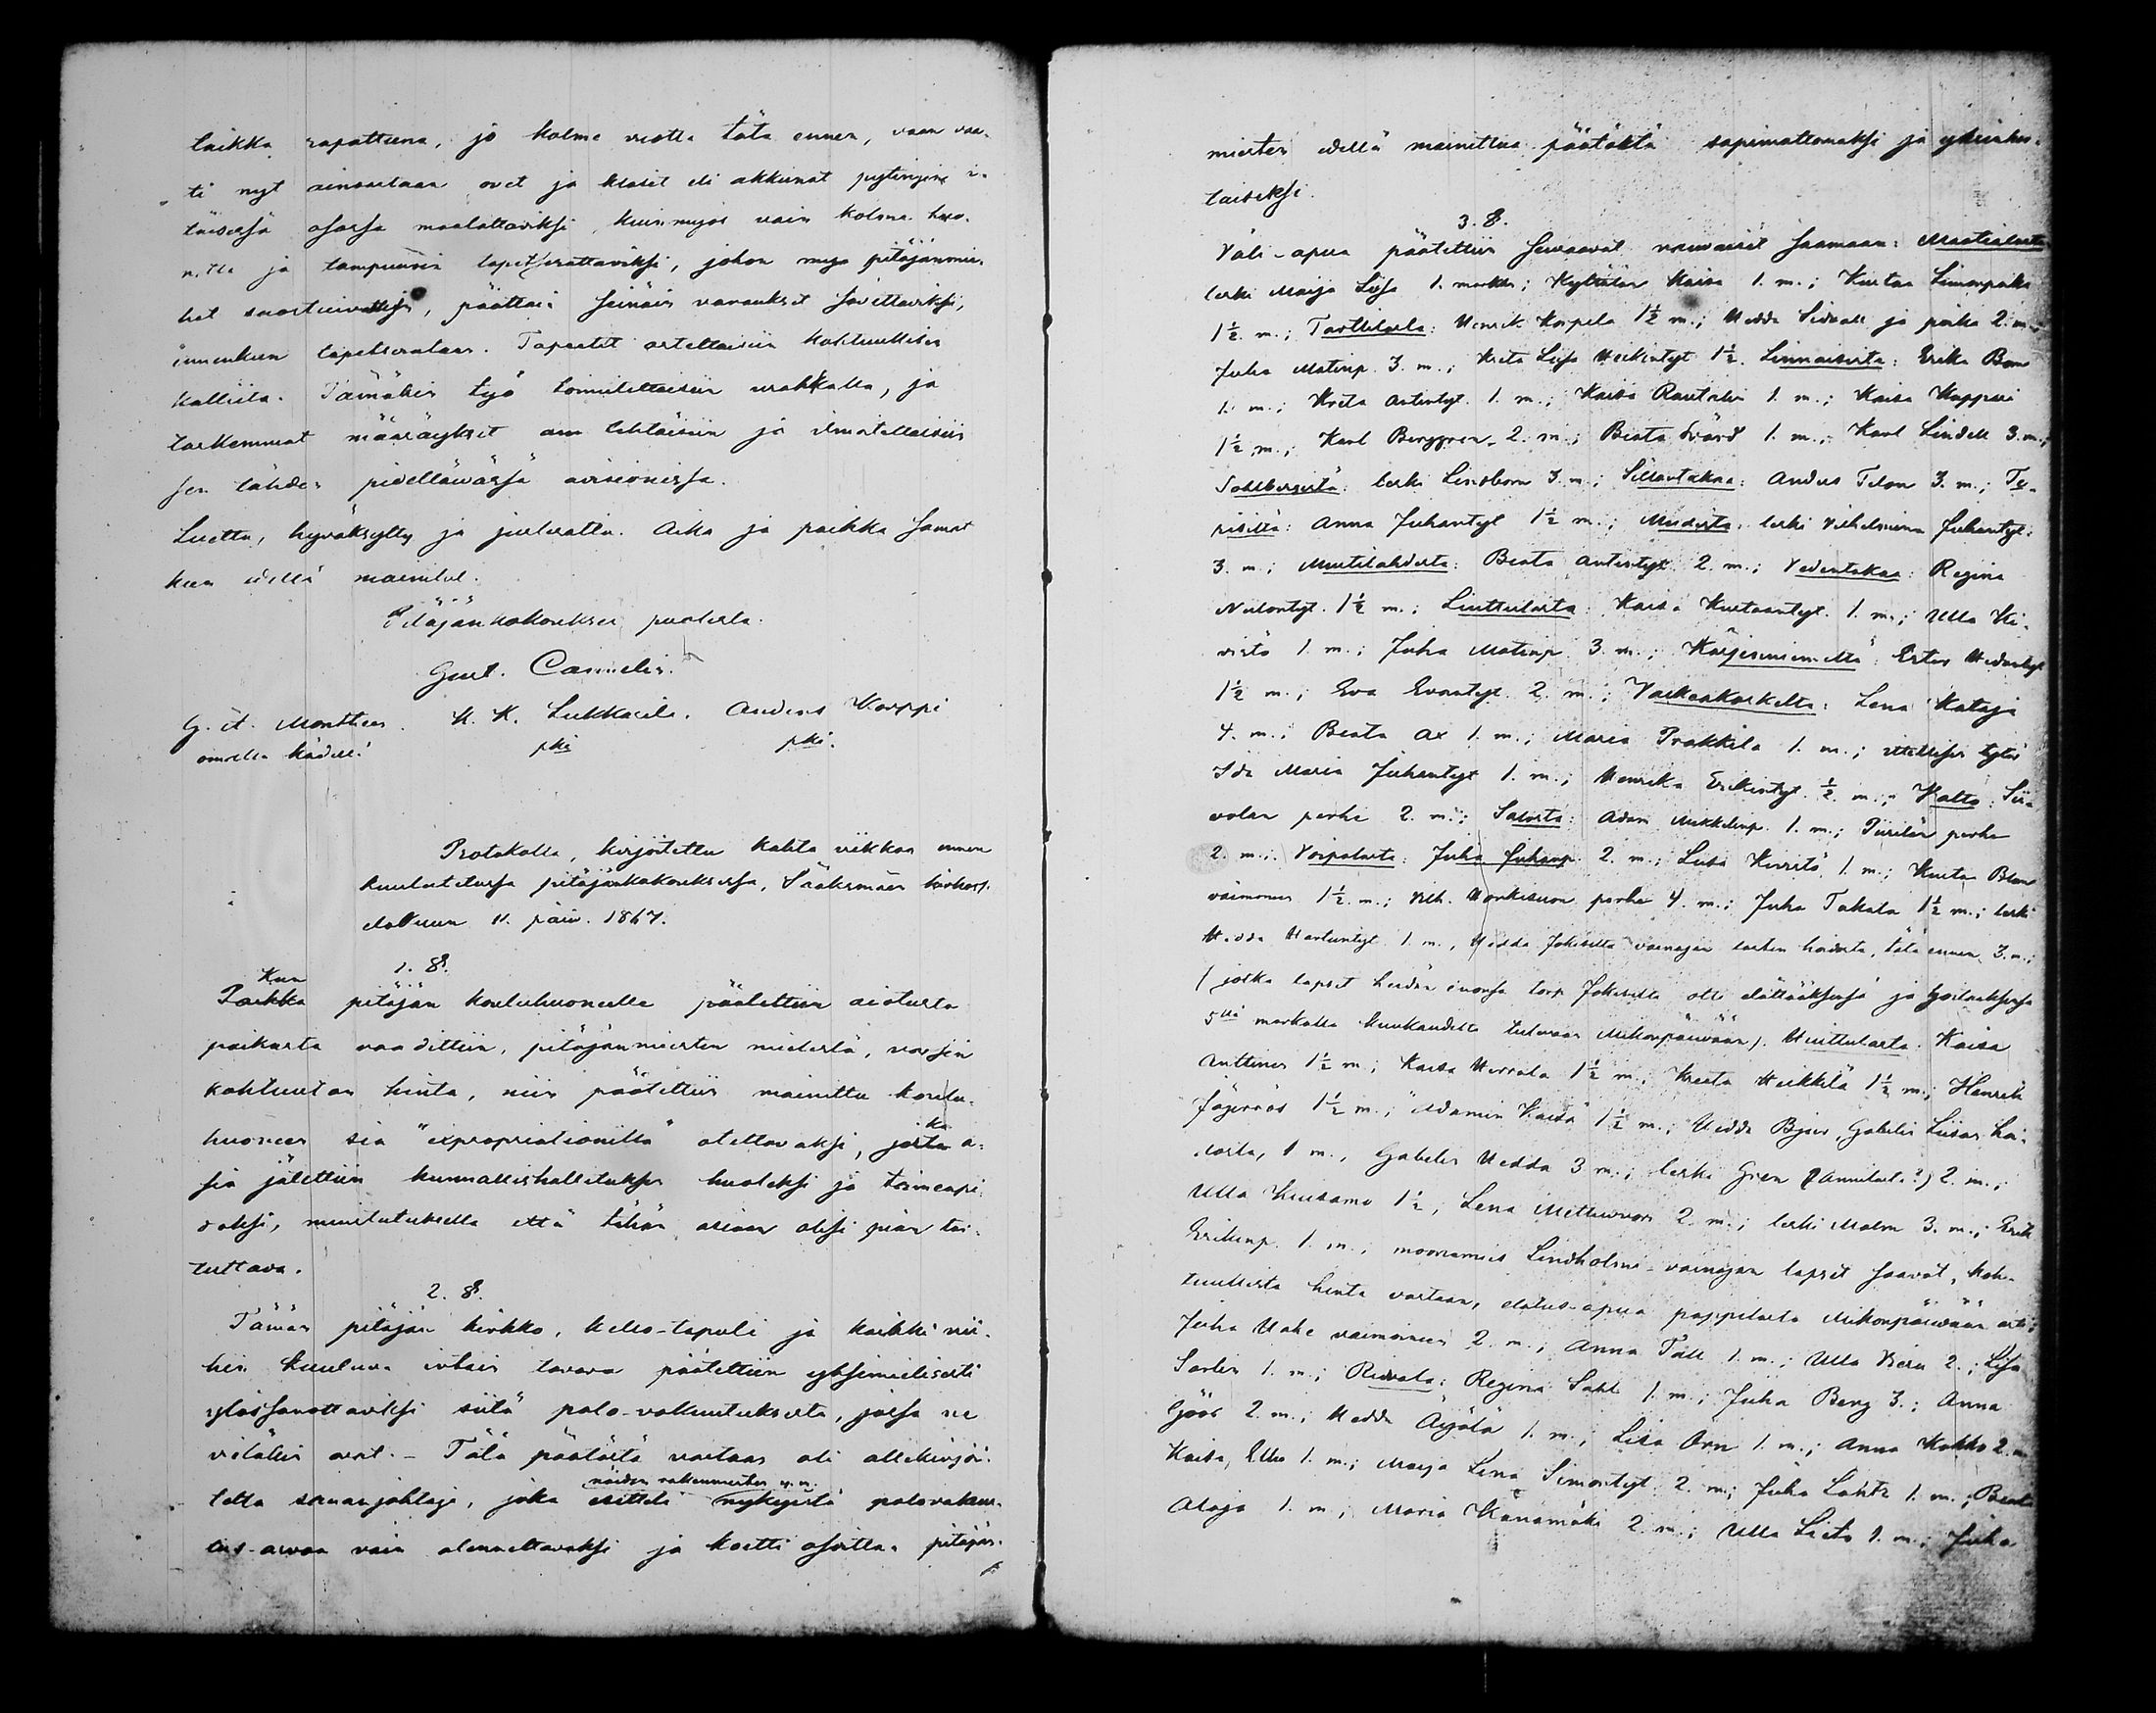 taikka rapattuna, jo kolme vuotta tätä ennen, vaan vaa-
ti nyt ainoastaan ovet ja klasit eli akkunat pytingin i-
täisessä osassa maalattaviksi, kuin myös vain kolme huo-
netta ja tampuurin tapetserattaviksi, johon myö pitäjänmie-
het suostuivat, päättäin seinäin varaukset savettaviksi,
ennenkun tapetserataan. Tapeetit ostettaisiin kohtuullisen
kalliita. Tämäkin työ toimitettaisiin urakkalla, ja
tarkemmat määräykset annettaisiin ja ilmotettaisiin
sen tähden pidettäwässä auksionissa.
Luettu, hyväksytty ja justerattu. Aika ja paikka samat
kun edellä mainitut.
Pitäjänkokouksen puolesta:
Gust. Cannelin.
G. A. Montten. K. K. Lukkaila. Anders Korppi
omalla kädellä pki pki.
Protokolla, kirjoitettu kahta viikkoa ennen
kuulutetussa pitäjänkokouksessa, Sääksmäen kirkossa
elokuun 11. päiv. 1867.
1. §.
Kun
Paikka pitäjän kouluhuoneelle päätettiin aiotusta
paikasta vaadittiin, pitäjänmiesten mielestä, varsin
kohtuuton hinta, niin päätettiin mainittu koulu-
huoneen sia "expropriationilla" otettavaksi, joka a-
sia jätettiin kunnallishallituksen huoleksi ja toimeenpi-
doksi, muistutuksella että tähän asiaan olisi pian toi-
tuttava.
2. §.
Tämän pitäjän kirkko, kello-tapuli ja kaikki nii-
hin kuuluva irtain tavara päätettiin yksimielisesti
ylössanottaviksi siitä palo-vakuutuksesta, jossa ne
vieläkin ovat. – Tätä päätöstä vastaan oli allekirjoi-
näiden rakennusten y. m.
tettu esimiesjohtaja, joka esitteli nykyistä palovakuu-
tus-arvoa vain alennettavaksi ja koetti osoittaa pitäjän-
miesten edellä mainittua päätöstä sopimattomaksi ja yksinker-
taiseksi.
3. §.
Väli-apua päätettiin seuraavat vaivaiset saamaan: Maatialasta
leski Maija Liisa 1. markka; Kylätön Kaisa 1. m.; Kustaa Simonpoika
1½. m.; Tarttilasta: Henrik Korpela 1½ m.; Hedda Sidvall ja poika 2. m.
Juha Matinp. 3. m.; Kreta Liisa Heikintyt 1½. Linnaisista: Erika Bom
1. m.; Kreta Antintyt. 1. m.; Kaisa Rautalin 1. m.; Kaisa Kuppari
1½ m.; Karl Berggren 2. m.; Beata Svärd 1. m.; Karl Lindell 3. m.;
Sahlbergistä: leski Lindbom 3. m.; Sillantakaa: Anders Tilon 3. m.; Ty-
risiltä: Anna Juhantyt 1½ m.; leski Vilhelmina Juhantyt.
3. m.; Muutilahdesta: Beata Antintyt 2. m.; Vedentakaa: Regina
Nilontyt. 1½ m.; Liuttulasta: Kaisa Kustaantyt. 1. m.; Ulla Ki-
vistö 1. m.; Juha Matinp. 3. m.; Kärjenniemeltä: Ester Hedantyt
1½ m.; Eva Evantyt. 2. m.; Valkeakoskelta: Lena Kataja
4. m.; Beata Ax 1. m.; Maria Prakkila 1. m.; tytär
Ida Maria Juhantyt 1. m.; Henrika Erikintyt. ½. m.; Kalto: Sii-
volan perhe 2. m.; Saarta: Adam Mikkelinp. 1. m.; Piirilän perhe
2. m.; Voipalasta: Juha Juhanp. 2. m.; Liisa Kivistö 1. m.; Kustaa Blom
vaimoineen 1½. m.; Vilh. Honkisuon perhe 4. m.; Juha Takala 1½ m.; leski
Hedda Martintyt 1. m., Hedda Jokiselta vainajan lasten hoidosta, tätä ennen 3. m.;
(jotka lapset heidän enonsa torp. Jokiselta otti elättääksensä ja
5llä markalla kuukaudelta tulevaan Mikonpäivään). Huittulasta: Kaisa
Anttinen 1½ m.; Kaisa Harrala 1½ m.; Kreeta Heikkilä 1½ m.; Henrik
Jägerros 1½ m.; "Adamin Kaisa" 1½ m.; Hedda Bjur, Gabelin Liisan hoi-
dosta, 1 m., Gabelin Hedda 3 m.; leski Gren (Annilasta?) 2. m.;
Ulla Kuusamo 1½; Lena Mettwuori 2. m.; leski Malm 3. m.; Erik
Erikinp. 1. m.; muonamies Lindholmi-vainajan lapset saavat, koh-
tuullista hinta vastaan, elatus-apua pappilasta Mikonpäivään asti;
Juha Hake vaimoineen 2. m.; Anna Tall 1. m.; Ulla Vieru 2.; Liisa
Sarlin 1. m.; Ridvala: Regina Sahl 1. m.; Juha Berg 3.; Anna
Göös 2. m.; Hedda Äijälä 1. m.; Lisa Örn 1. m.; Anna Kokko 2. m
Kaisa, Ello 1. m.; Maija Lena Simontyt. 2. m.; Juha Lahti 1. m.; Beata
Alaja 1. m.; Maria Kanamäki 2. m.; Ulla Lieto 1. m.; Juha